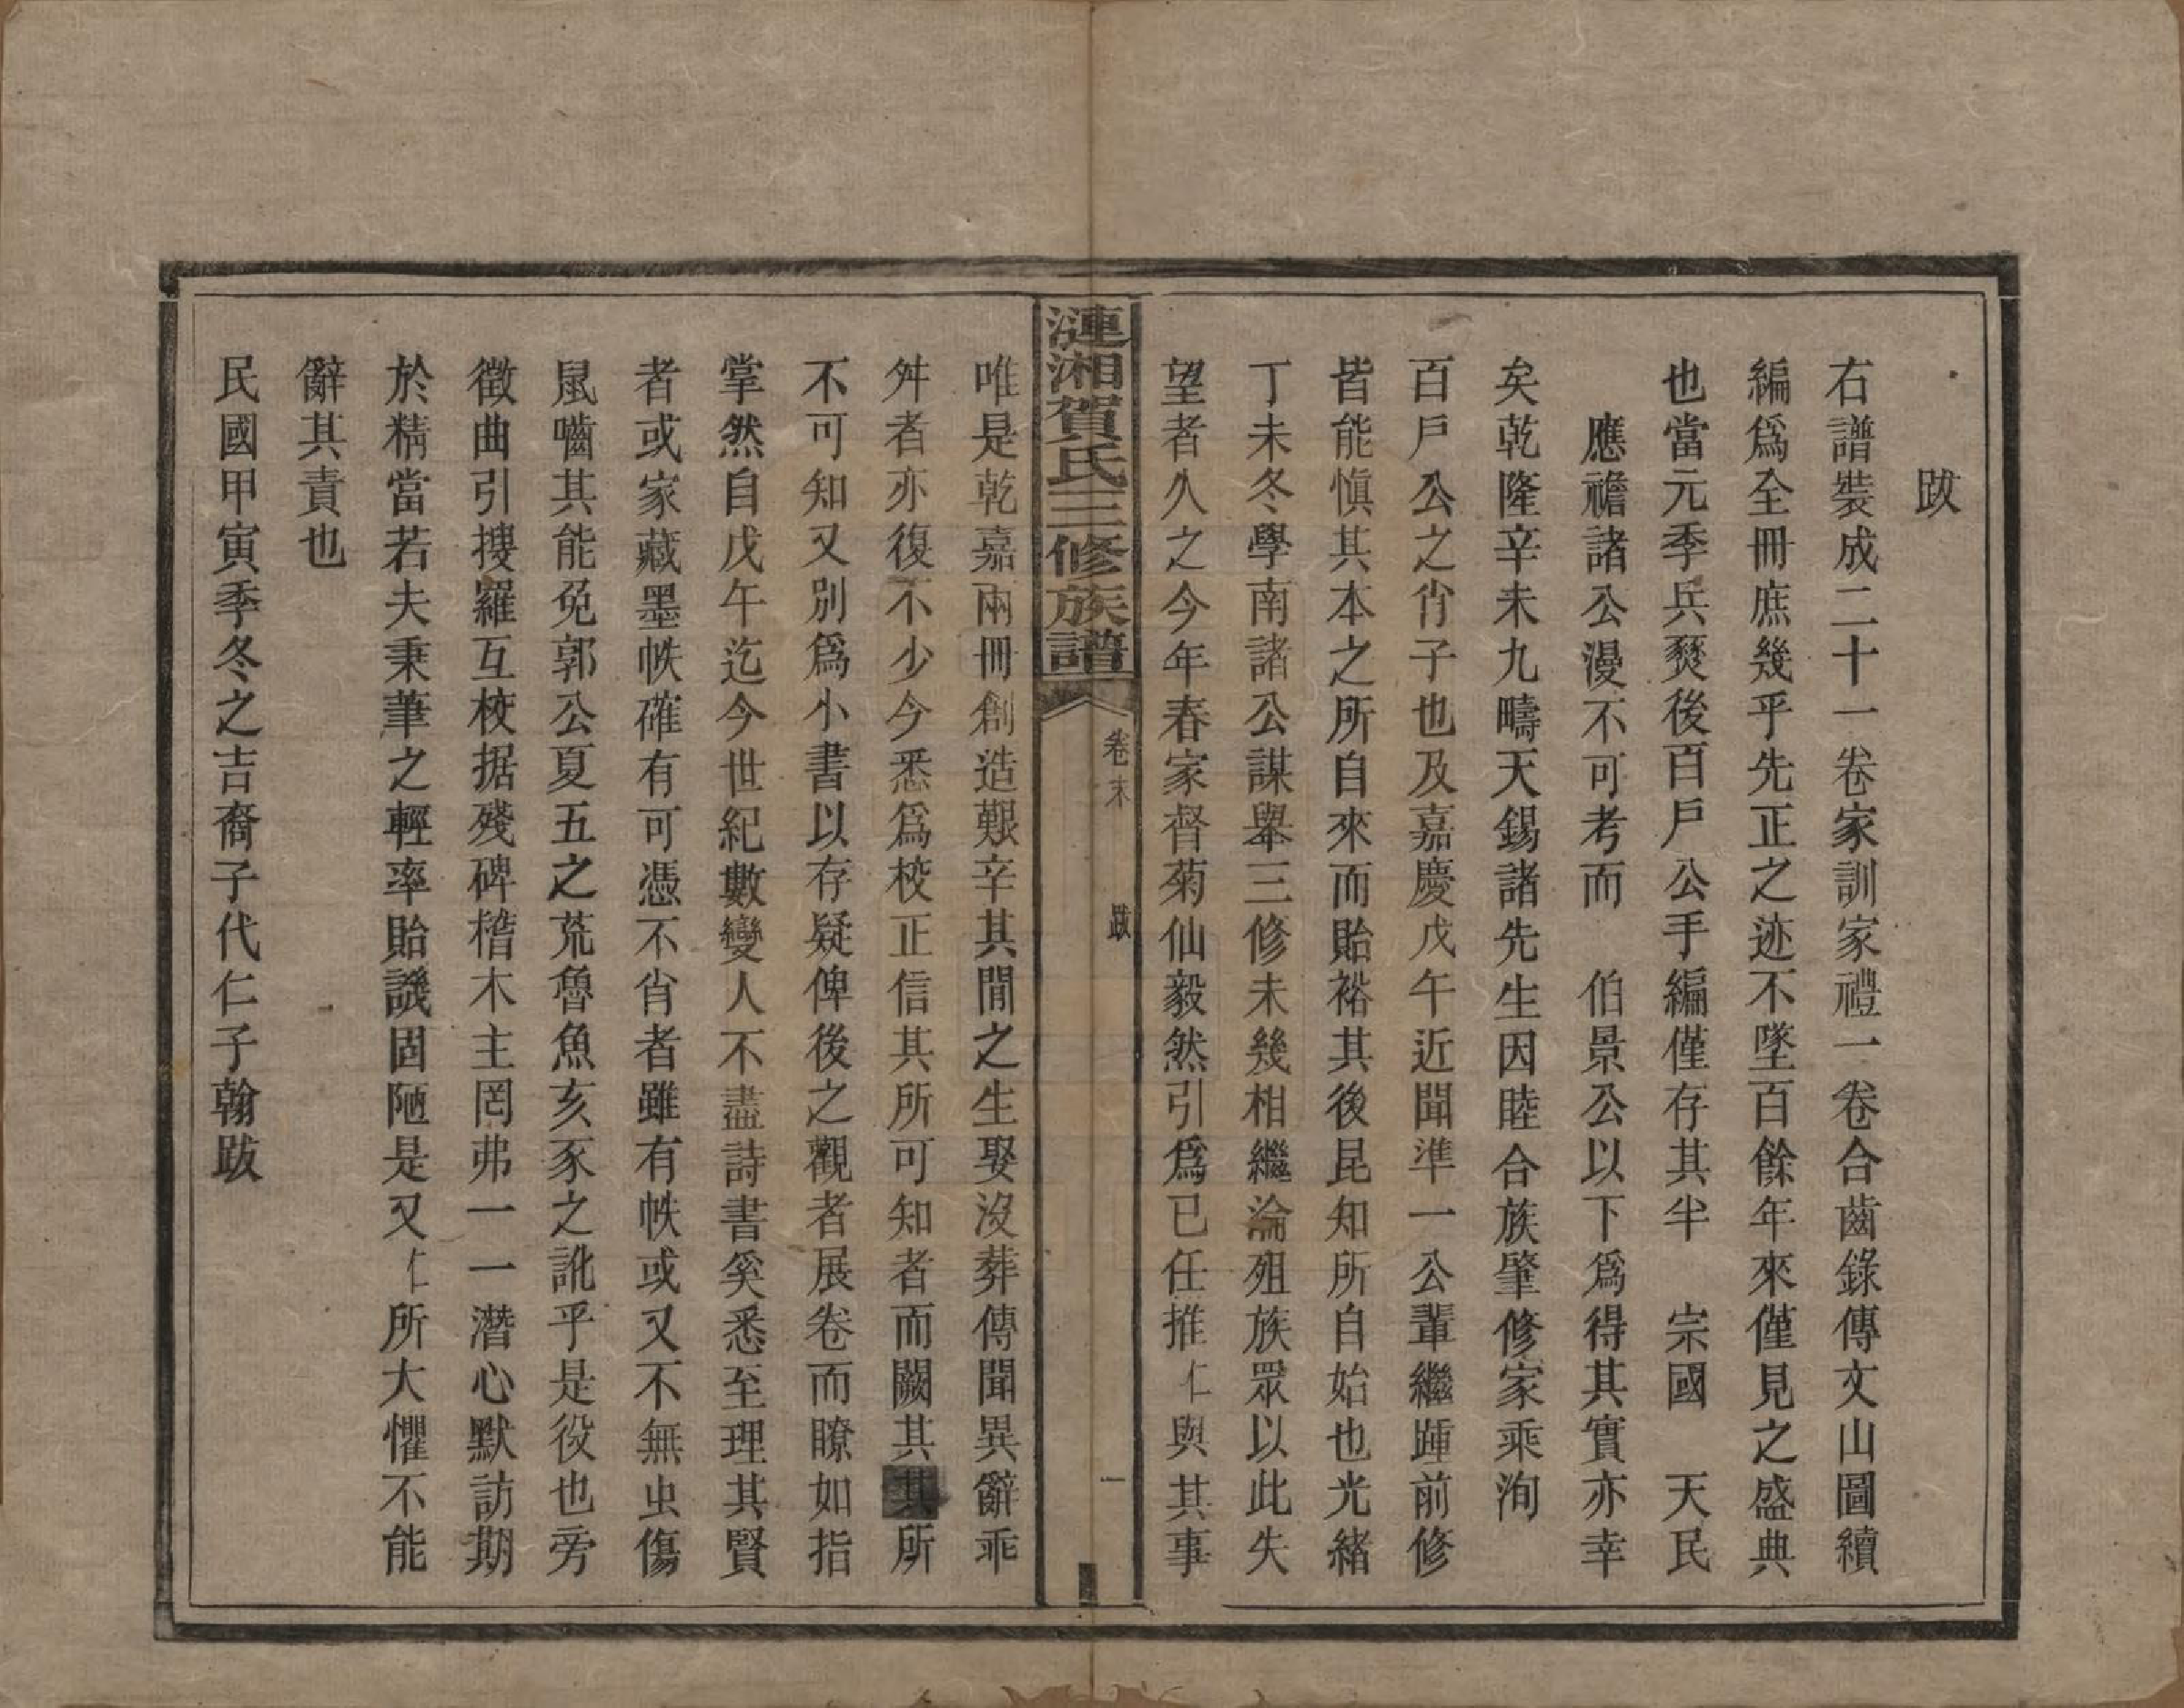 跋
右譜裝成二十一卷家訓家禮一卷合齒錄傳文山圖續
編爲全冊庶幾乎先正之迹不墜百餘年來僅見之盛典
也當元季兵燹後百戶公手編僅存其半　宗國　天民
應禧諸公漫不可考而　伯景公以下爲得其實亦幸
矣乾隆辛未九疇天錫諸先生因睦合族肇修家乘洵
百戶公之肖子也及嘉慶戊午近聞準一公輩繼踵前修
皆能愼其本之所自來而貽裕其後昆知所自始也光緒
丁未冬學南諸公謀舉三修未幾相繼淪殂族眾以此失
望者久之今年春家督菊仙毅然引爲已任推仁與其事
漣湘賀氏三修族譜
卷末　跋
一
唯是乾嘉兩冊創造艱辛其間之生娶沒葬傳聞異辭乖
舛者亦復不少今悉爲校正信其所可知者而闕其其所
不可知又別爲小書以存疑俾後之觀者展卷而瞭如指
掌然自戊午迄今世紀數變人不盡詩書奚悉至理其賢
者或家藏墨帙確有可憑不肖者雖有帙或又不無虫傷
鼠嚙其能免郭公夏五之荒魯魚亥豕之訛乎是役也旁
徵曲引搜羅互校据殘碑稽木主罔弗一一潛心默訪期
於精當若夫秉筆之輕率貽譏固陋是又仁所大懼不能
辭其責也
民國甲寅季冬之吉裔子代仁子翰跋